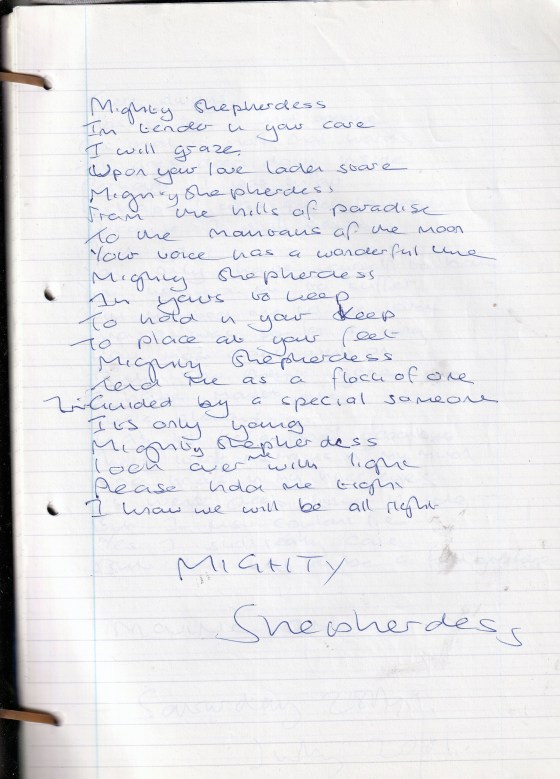 Mighty Shepherdess
Im tender in your care
I will graze.
Upon your love laden stare
Mighty Shepherdess
From the hills of paradise
To the mountains of the moon
Your voice has a wonderful tune
Mighty Shepherdess
Im yours to keep
To hold in your keep
To place at your feet
Mighty Shepherdess
Tend me as a flock of one
Guided by a special someone
Its only young
Mighty Shepherdess
look over me with light
Please hold me tight
I know we will be all right
MIGHTY
Shepherdess